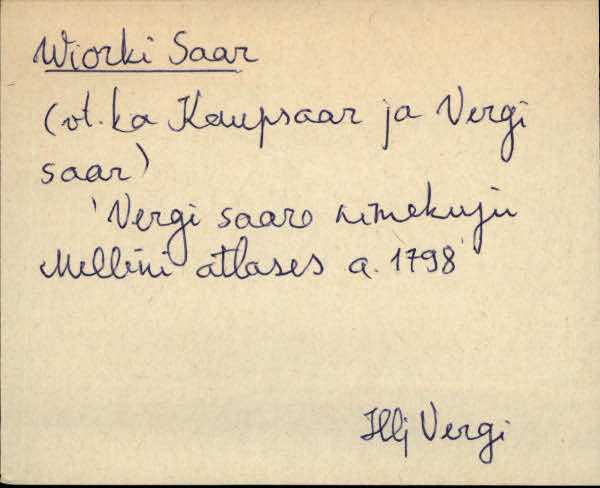 Wiorki Saar
(vt. ka Kaupsaar ja Vergi
saar)
'Vergi saare nimekuju
Mellini atlases a. 1798'
Hlj Vergi